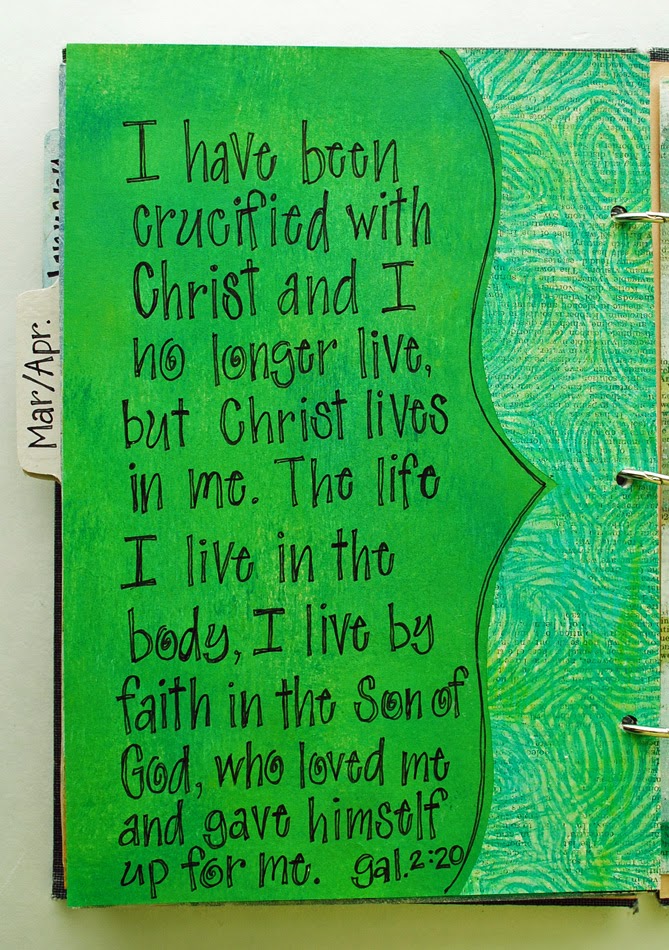 I have been
crucified with
Christ and I
no longer live,
but Christ lives
in me. The life
I live in the
body, I live by
faith in the Son of
God, who loved me
and gave himself
up for me. gal. 2:20
Mar/Apr.